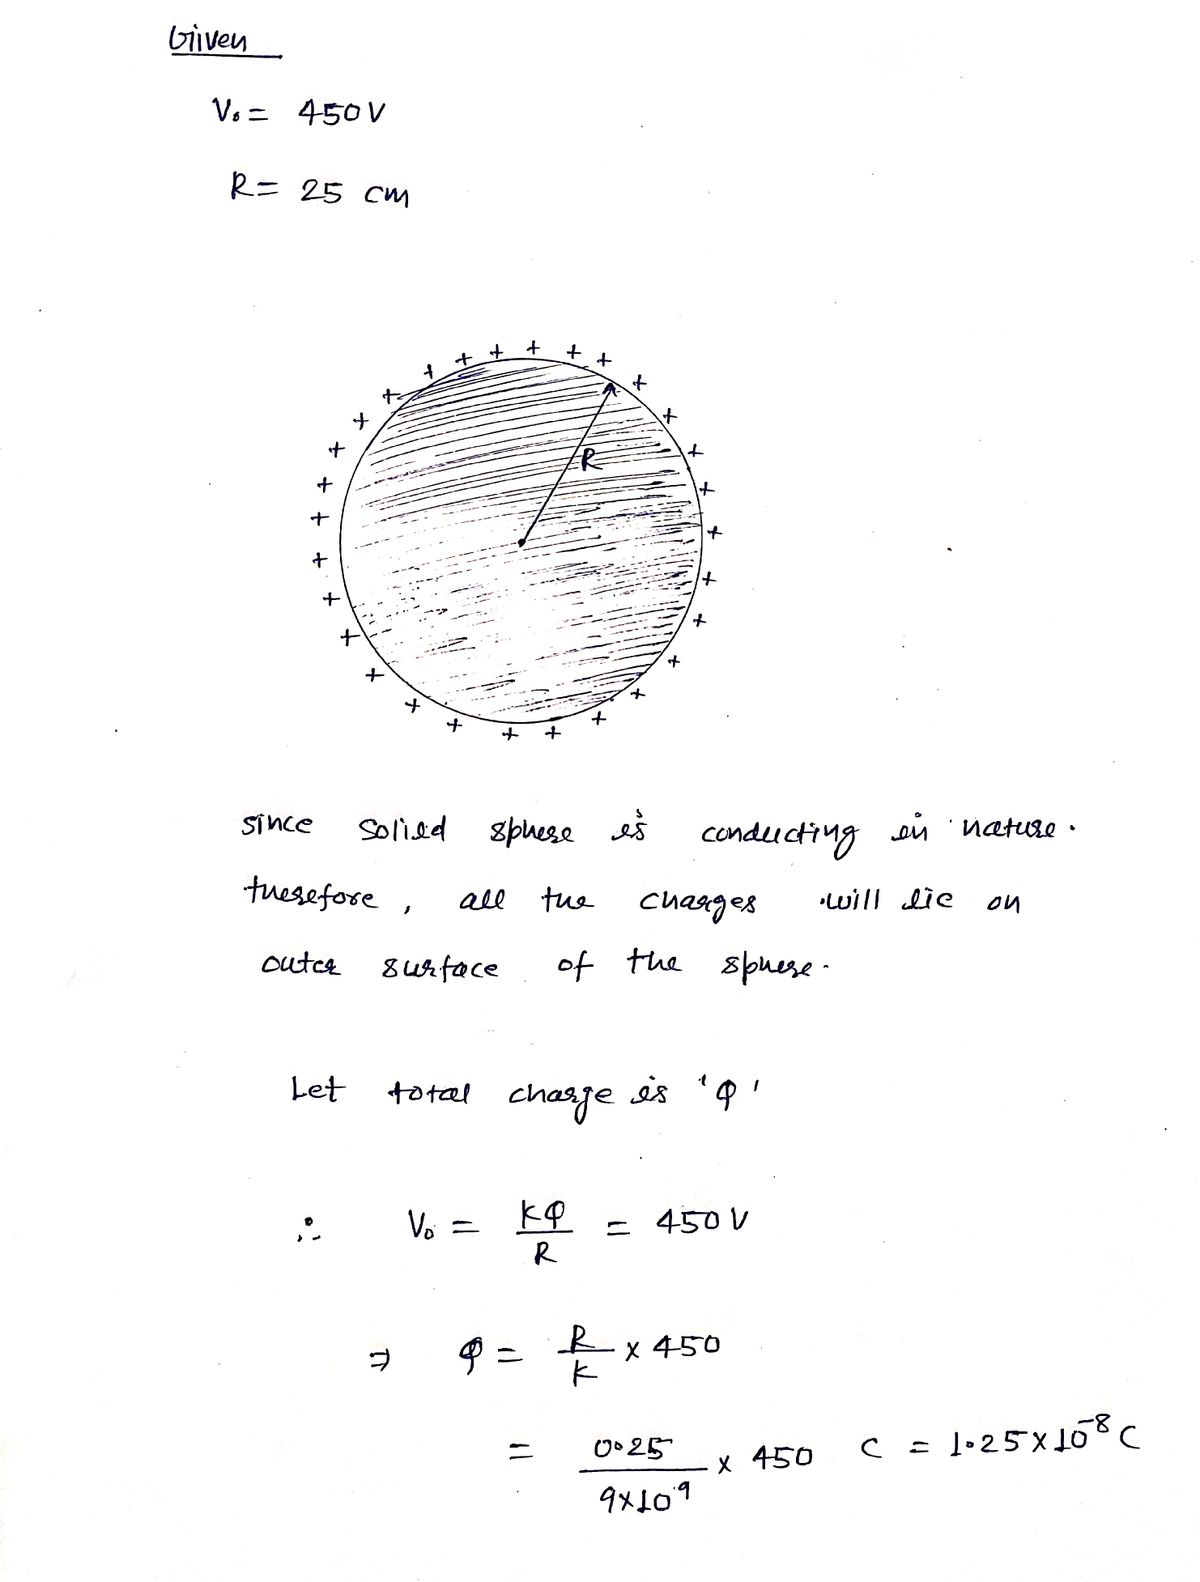 Given
V₀ = 450 V
R = 25 cm
+ + + + + + + + + + + + + + + + + + + + + + + + + + + + + + + + + +
R
since solied sphere is conducting in nature.
therefore, all the charges will lie on
outer surface of the sphere.
Let total charge is 'Q'
∴ V₀ = KQ/R = 450 V
⇒ Q = R/K × 450
= 0.25/9×10⁹ × 450 C = 1.25×10⁻⁸ C